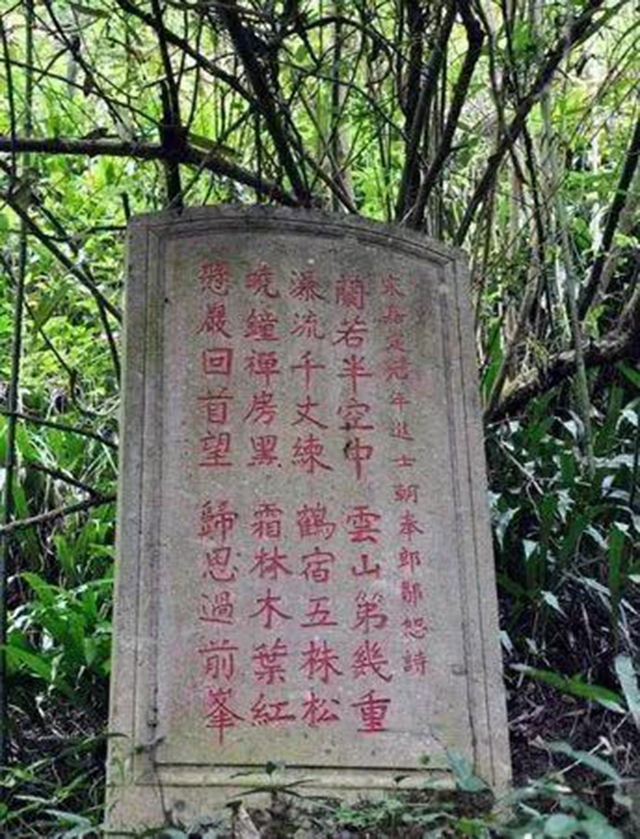 宋嘉定年進士朝奉郎鄭恕詩
蘭若半空中 雲山第幾重
瀑流千丈練 鶴宿五株松
曉鐘禪房黑 霜林木葉紅
懸巖回首望 歸思過前峯